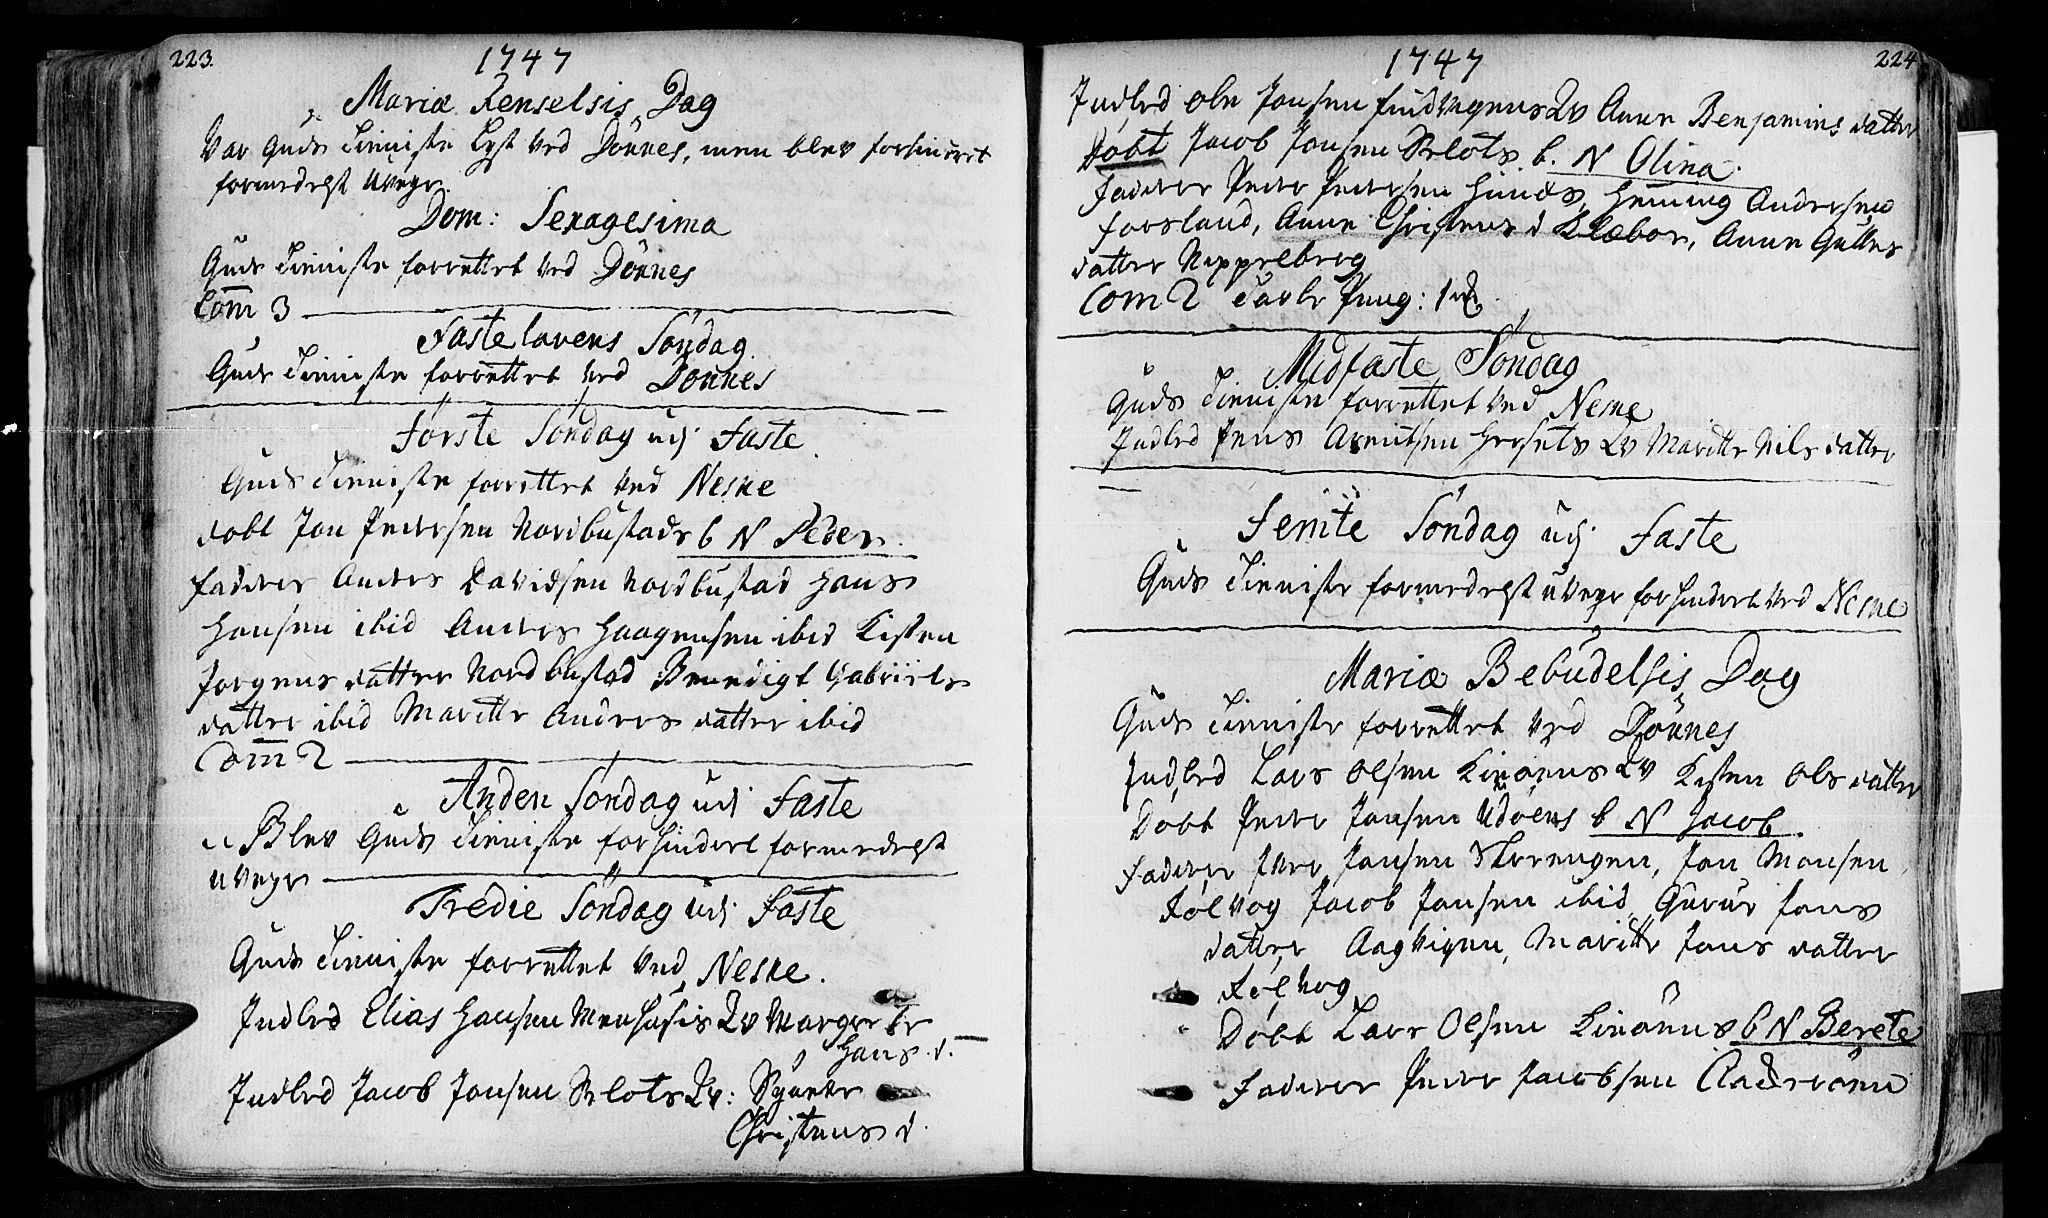 223.
1747
Mariæ Renselsis Dag
Var Guds Tienniste Lyst ved Dönnes, men blev forhindret
formedelst uveyr.
Dom: Sexagesima
Guds Tienniste forrettet ved Dönnes
Com 3
Fastelavens Söndag
Guds Tienniste forrettet ved Dönnes
Förste Söndag udj Faste
Guds Tienniste forrettet ved Nesne
döbt Jon Pedersen Nordbustads b N Peder.
Faderer Anders Davidsen Nordbustad Hans
Hansen ibid Anders Haagensen ibid Kisten
Jorgens datter Nordbustad Benedigt Gabriels
datter ibid Maritte Anders datter ibid
Com 2
Anden Söndag udj Faste
Blev Guds Tienniste forhindret formedelst
uveyr
Tredie Söndag udj Faste
Guds Tienniste forrettet ved Nesne.
Indled Elias Hansen Q v Margrete
Hans d.
Indled Jacob Jonsen Q v:
Christens d.
224
1747
Indled Ole Jonsen Findvegens Q v Anne Benjamins datter
Döbt Jacob Jonsen b. N Olina.
Faderer Peder Pedersen Hunds, Hening Andersen
Forsland, Anne Christens d Klæboe, Anne
datter
Com 2 Tavle Peng: 1
Midfaste Söndag
Guds Tienniste forrettet ved Nesne
Indled Jens Arentsen Hersets Q v Maritte Nils datter
Femte Söndag udj Faste
Guds Tienniste formedelst uveyr forhindret ved Nesne
Mariæ Bebudelsis Dag
Guds Tienniste forrettet ved Dönnes
Indled Lars Olsen Q v Kisten Ols datter
Döbt Peder Jonsen b N Jacob.
Faderer Iver Jonsen, Jon Monsen
Sölvog Jacob Jonsen ibid Gurur Jons
datter Aagvigen, Maritte Jons datter
Sölvog
Döbt Lars Olsen b N Berete
Faderer Peder Jacobsen